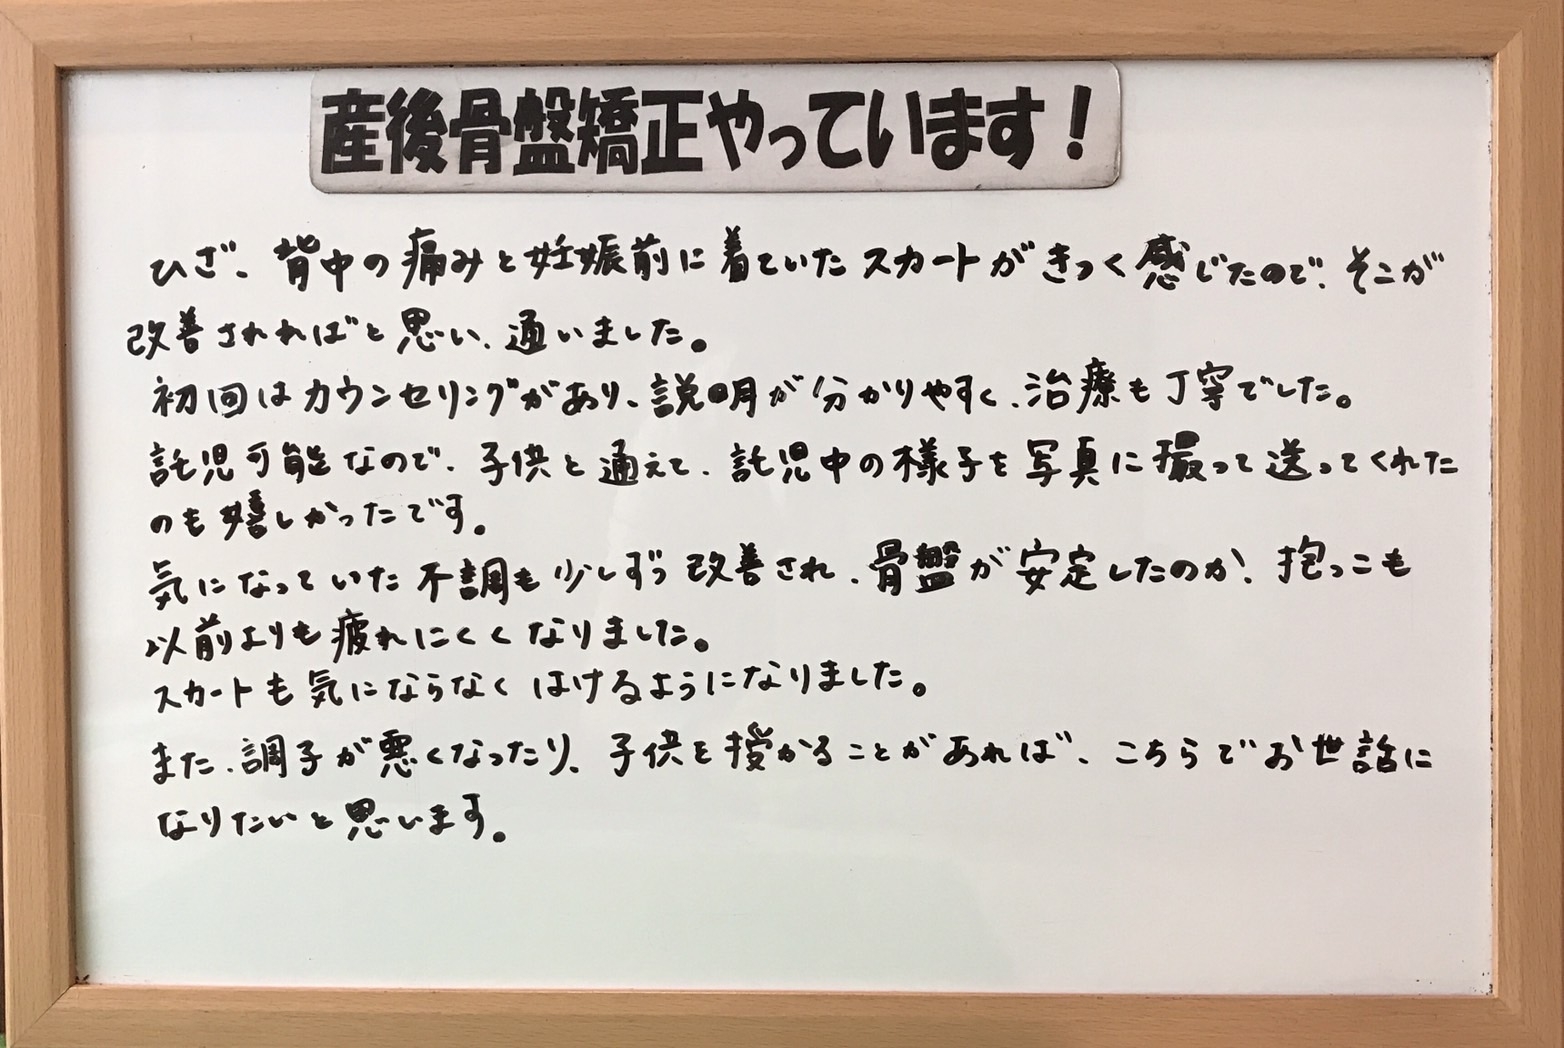 産後骨盤矯正やっています！
ひざ、背中の痛みと妊娠前に着ていたスカートがきつく感じたので、そこが
改善されればと思い、通いました。
初回はカウンセリングがあり、説明が分かりやすく、治療も丁寧でした。
託児可能なので、子供と通えて、託児中の様子を写真に撮って送ってくれた
のも嬉しかったです。
気になっていた不調も少しずつ改善され、骨盤が安定したのか、抱っこも
以前よりも疲れにくくなりました。
スカートも気にならなくはけるようになりました。
また、調子が悪くなったり、子供を授かることがあれば、こちらでお世話に
なりたいと思います。